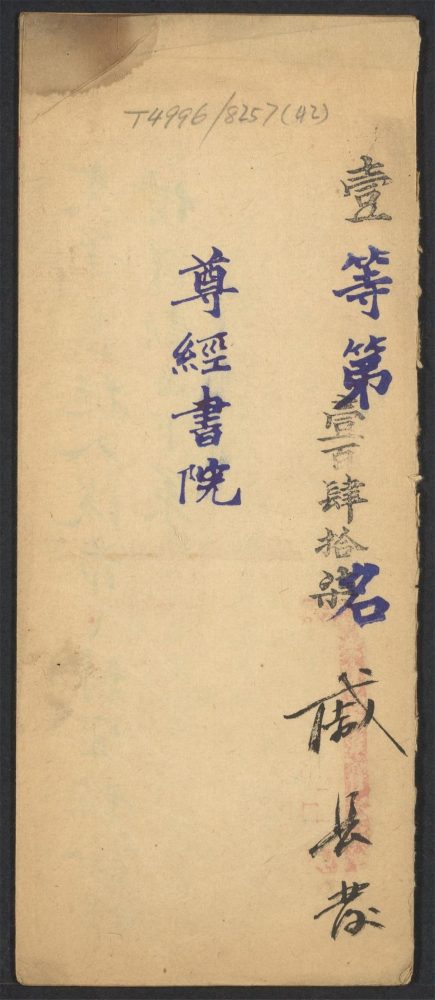 T4996/8257(42)
壹等第壹百肆拾柒名 戚長發
尊經書院